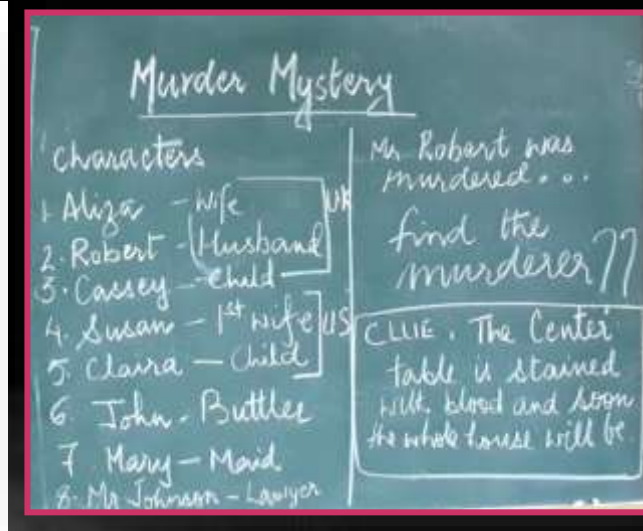 Murder Mystery
Characters
1. Aliza - Wife
UK
2. Robert - Husband
3. Cassey - Child
4. Susan - 1st wife
US
5. Claira - Child
6. John - Buttler
7. Mary - Maid
8. Mr Johnson - Lawyer
Mr Robert was
murdered...
find the
murderer??
CLUE. The Center
table is stained
with blood and soon
the whole house will be